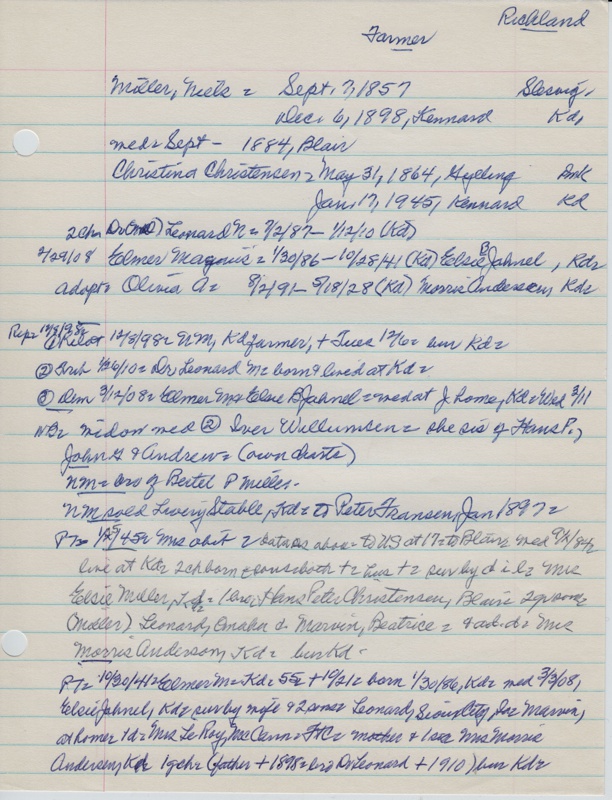 Richland
Farmer
Miller, Niels = Sept. 7, 1857 Sleswig,
Dec. 6, 1898, Kennard Kd,
med = Sept - 1884, Blair
Christina Christensen = May 31, 1864, Gylling Dmk
Jan. 17, 1945, Kennard Kd
2 chn Dr Leonard N = 7/2/87 - 1/12/10 (Kd)
2/29/08 Elmer Magnus = 1/30/86 - 10/28/41 (Kd) Elsie B Jahnel, Kd =
adopt = Olivia A = 8/2/91 - 5/18/28 (Kd) Morris Andersen, Kd =
① Pilot 12/8/98 = NM, Kd farmer, + Tues 12/6 = bur Kd =
② Trib 1/26/10 = Dr Leonard M = born & lived at Kd =
③ Dem 3/12/08 = Elmer M = Elsie B Jahnel = med at J home, Kd = Wed 3/11
NB = widow med ② Iver Willumsen = she sis of Hans P.,
John G & Andrew = (own charts)
NM = bro of Bertel P Miller -
NM sold Livery Stable, Kd = to Peter Fransen, Jan 1897 =
PT = 1/25/45 = Mrs obit = data as above = to US at 17 = to Blair = med 9/ /84 =
live at Kd = 2 ch born = sons both + = hus + = sur by d i l = Mrs
Elsie Miller, Kd = 1 bro, Hans Peter Christensen, Blair = 2 gr sons
(Miller) Leonard, Omaha & Marvin, Beatrice = & ad. d = Mrs
Morris Anderson, Kd = bur Kd -
PT = 10/30/41 = Elmer M = Kd = 55 = + 10/21 = born 1/30/86, Kd = med 3/3/08,
Elsie Jahnel, Kd = sur by wife & 2 sons = Leonard, Sioux City, Ia = Marvin,
at home = 1 d = Mrs Le Roy McCann = Ft C = mother & 1 sis = Mrs Morris
Andersen, Kd = 1 g ch = (father + 1898 = bro Dr Leonard + 1910) bur Kd =